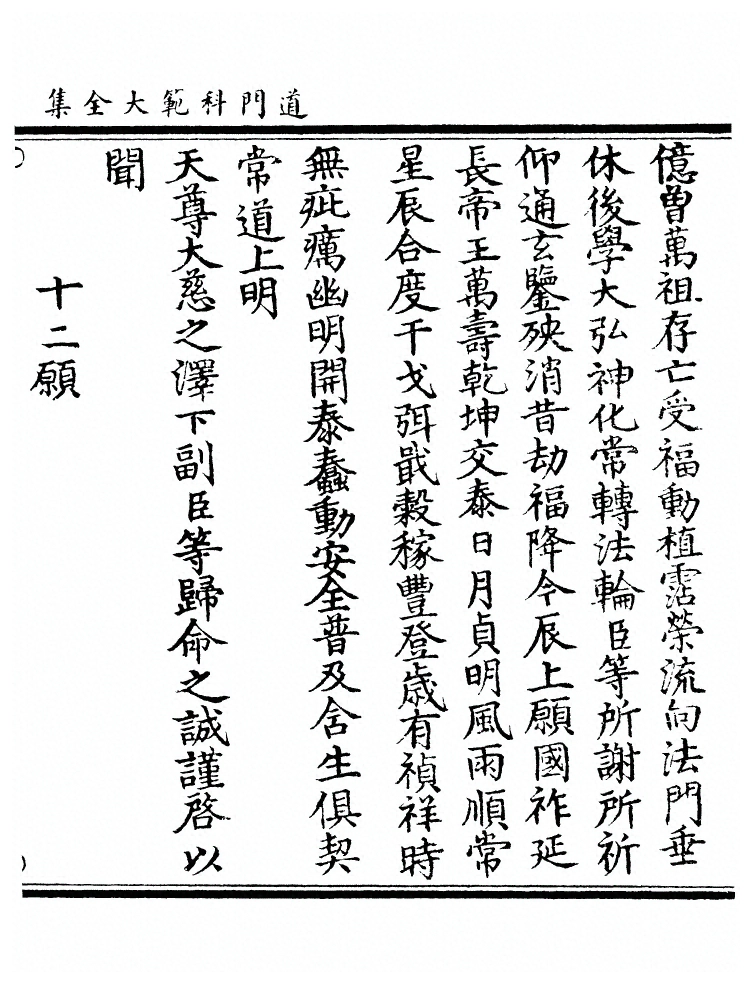 道門科範大全集
億曾萬祖存亡受福動植霑榮流向法門垂
休後學大弘神化常轉法輪臣等所謝所祈
仰通玄鑒殃消昔劫福降今辰上願國祚延
長帝王萬壽乾坤交泰日月貞明風雨順常
星辰合度干戈弭戢穀稼豐登歲有禎祥時
無疵癘幽明開泰蠢動安全普及含生俱契
常道上明
天尊大慈之澤下副臣等歸命之誠謹啓以
聞
十二願